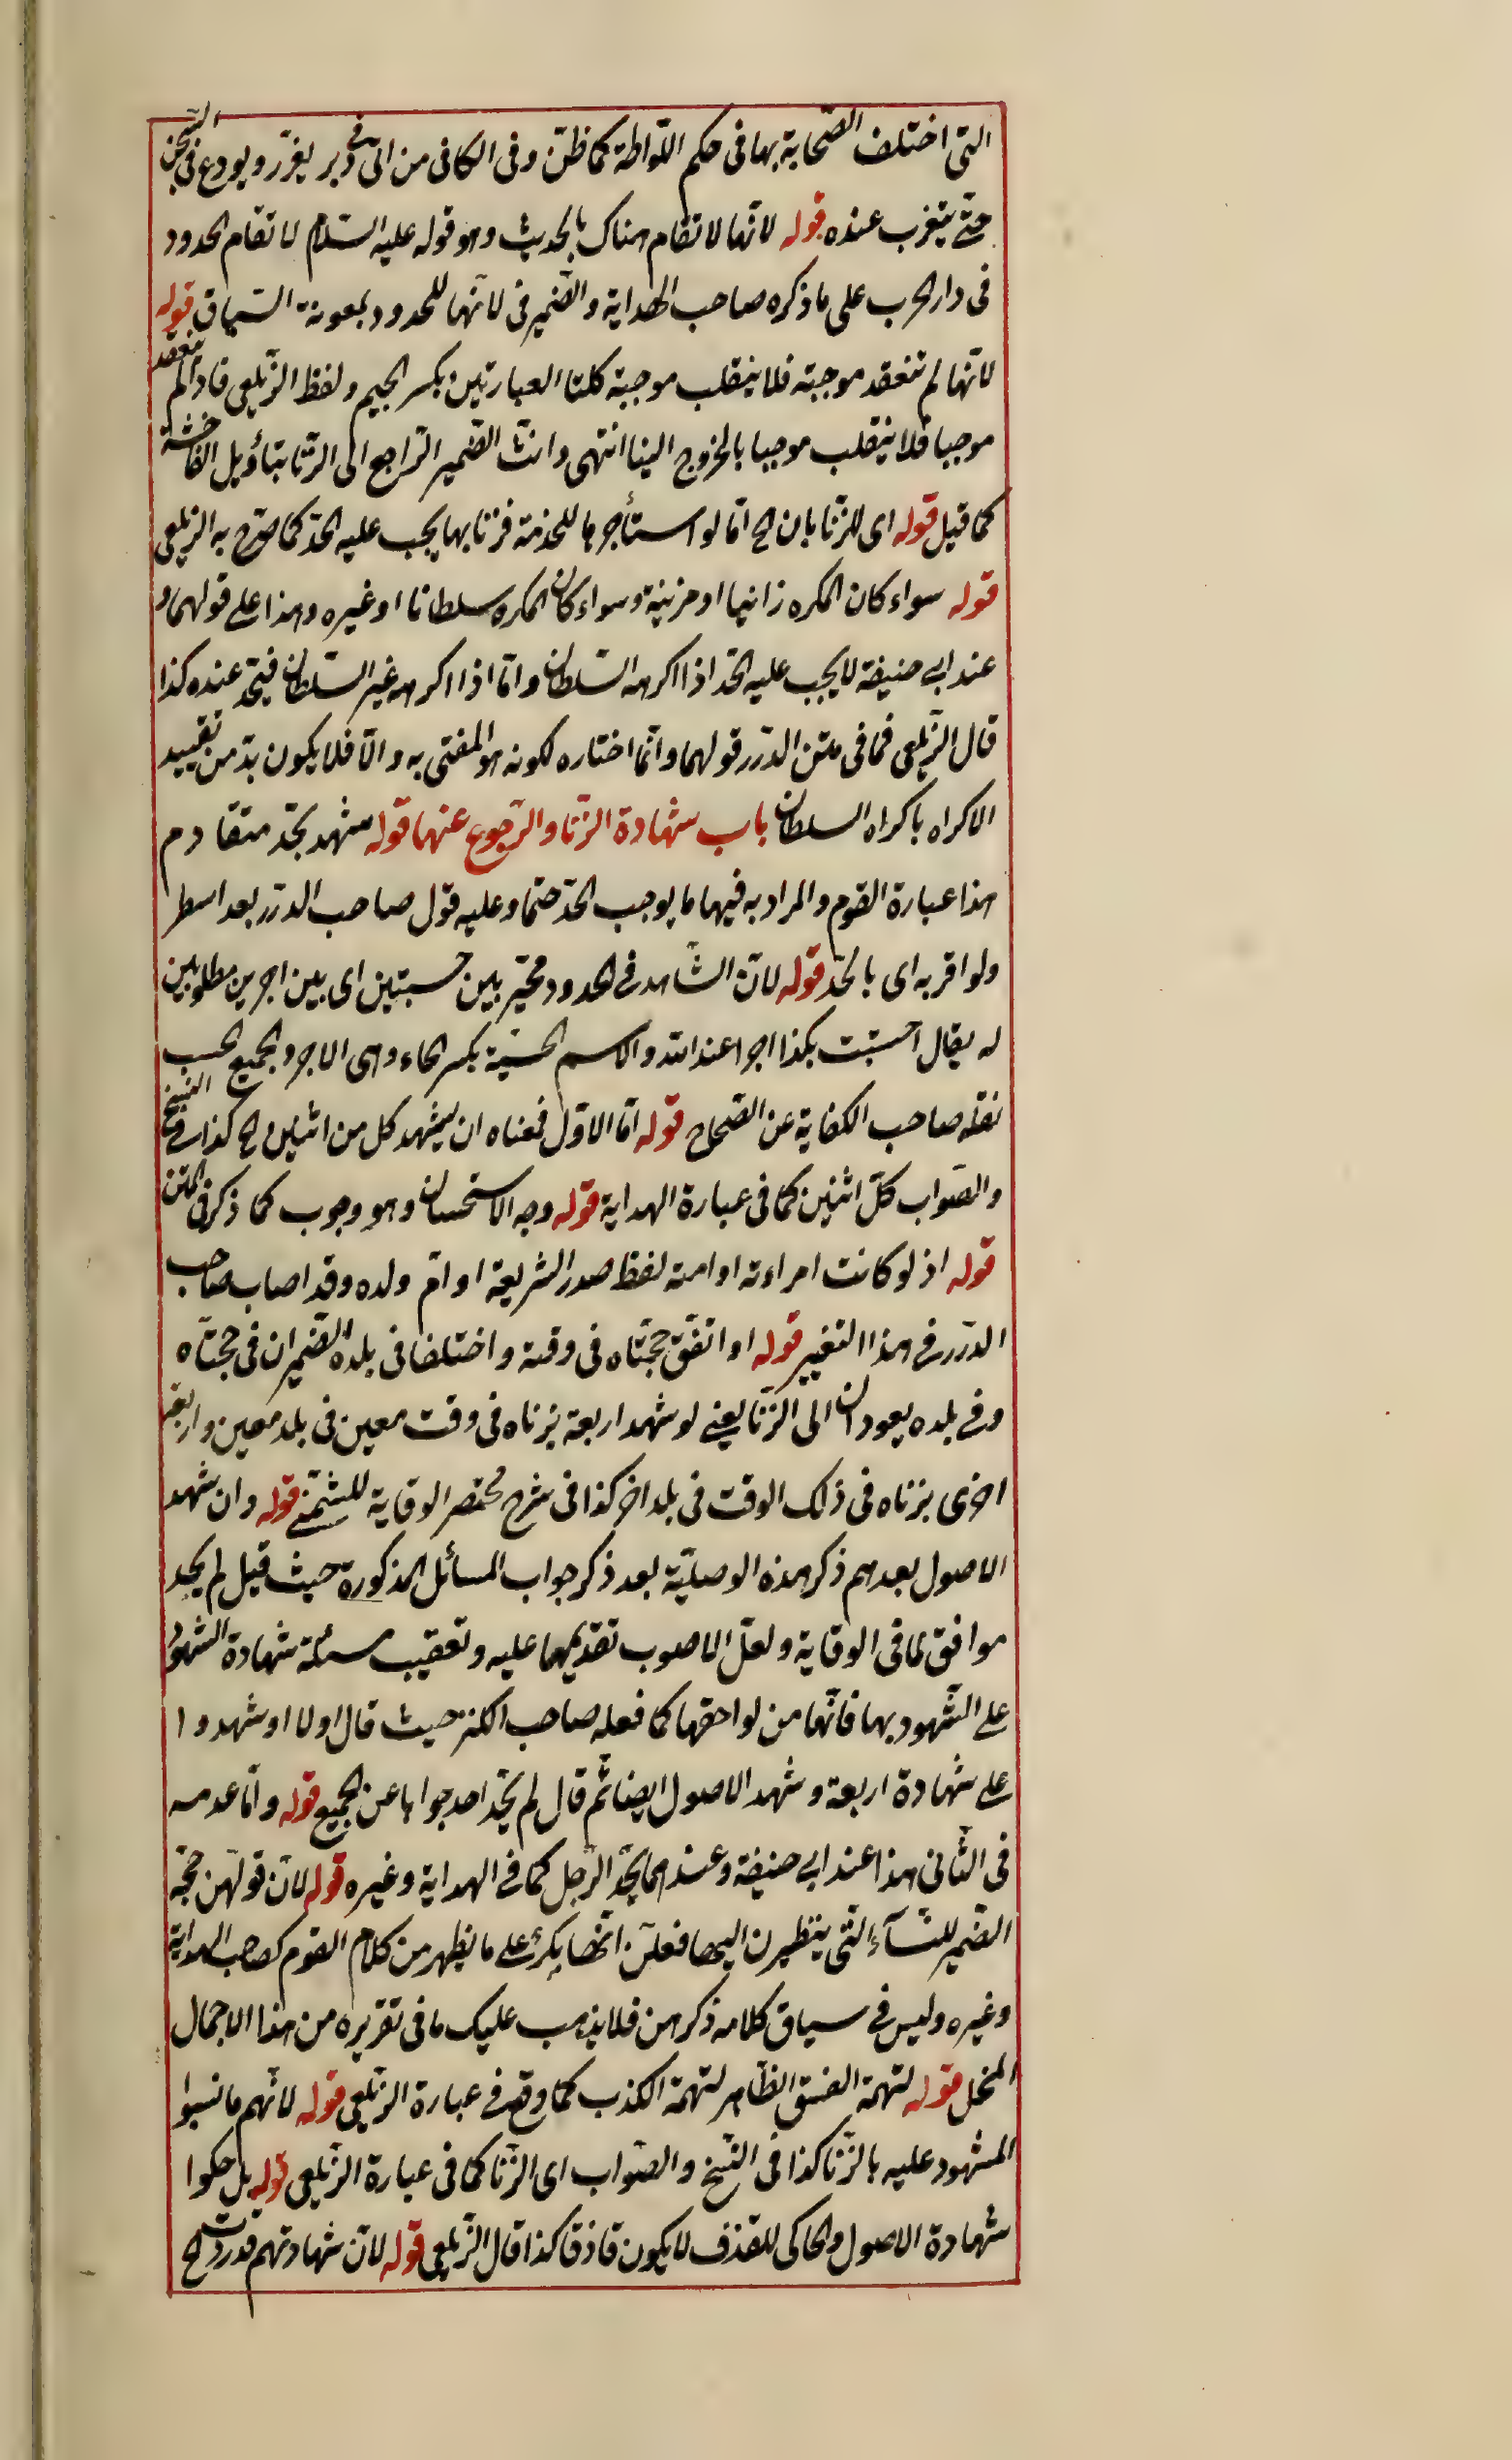 التى اختلف الصّحابة بها فى حكم اللّواطة كما ظنّ وفى الكافى من اتى فى دبر يعزّر ويودع فى السّجن
حتّى يتغرب عنده قوله لانّها لا تقام هناك بالحديث وهو قوله عليه السّلام لا تقام الحدود
فى دار الحرب على ما ذكره صاحب الهداية والضّمير فى لانّها للحدود بمعونة السّياق قوله
لانّها لم تنعقد موجبة فلا ينقلب موجبة كلتا العبارتين بكسر الجيم ولفظ الزّيلعى فاذا لم ينعقد
موجبا فلا ينقلب موجبا بالخروج الينا انتهى وانث الضّمير الرّاجع الى الزّنا بتأويل الفاحشة
كما قيل قوله اى للزّنا بان الخ امّا لو استأجرها للخدمة فزنا بها يجب عليه الحدّ كما صرّح به الزيلعى
قوله سواء كان المكره زانيا او مزنية وسواء كان المكره سلطانا او غيره وهذا على قولهما و
عند ابى حنيفة لا يجب عليه الحدّ اذا اكرهه السّلطان وامّا اذا اكرهه غير السّلطان فيحدّ عنده كذا
قال الزّيلعى فما فى متن الدّرر قولهما وانّما اختاره لكونه هو المفتى به والّا فلا يكون بدّ من تقييد
الاكراه باكراه السلطان باب شهادة الزّنا والرّجوع عنهما قوله شهد بحدّ متقادم
هذا عبارة القوم والمراد به فيها ما يوجب الحدّ حتما وعليه قول صاحب الدّرر بعد اسطر
ولو اقر به اى بالحدّ قوله لانّ الشّاهد فى الحدود مخيّر بين حسبتين اى بين اجرين مطلوبين
له يقال احتسبت بكذا اجرا عند الله والاسم الحسبة بكسر الحاء وهى الاجر والجمع الحسب
نقله صاحب الكفاية عن الصّحاح قوله امّا الاوّل فمعناه ان يشهد كل من اثنين الخ كذا فى النّسخ
والصّواب كلّ اثنين كما فى عبارة الهداية قوله وجه الاستحسان وهو وجوب كما ذكر فى المتن
قوله اذ لو كانت امراءته او امته لفظ صدر الشّريعة او امّ ولده وقد اصاب صاحب
الدّرر فى هذا التّغيير قوله او اتفق حجّتاه فى وقته واختلفا فى بلده الضّميران فى حجّتاه
وفى بلده يعودان الى الزّنا يعنى لو شهد اربعة بزناه فى وقت معين فى بلد معين واربعة
اخرى بزناه فى ذلك الوقت فى بلد اخر كذا فى شرح مختصر الوقاية للشّمنّى قوله وان شهد
الاصول بعدهم ذكر هذه الوصليّة بعد ذكر جواب المسائل المذكورة حيث قيل لم يحد
موافق لما فى الوقاية ولعلّ الاصوب تقديمها عليه وتعقيب مسئلة شهادة الشهود
على الشّهود بها فانّها من لواحقها كما فعله صاحب الكنز حيث قال اولا او شهدوا
على شهادة اربعة وشهد الاصول ايضا ثمّ قال لم يحدّ احد جوابا عن الجميع قوله وامّا عدمه
فى الثّانى هذا عند ابى حنيفة وعندهما يحدّ الرّجل كما فى الهداية وغيره قوله لانّ قولهنّ حجّة
الضّمير للنّساء الّتى ينظرن اليها فعلن انّها بكر على ما يظهر من كلام القوم كصاحب الهداية
وغيره وليس فى سياق كلامه ذكرهن فلا يذهب عليك ما فى تقريره من هذا الاجمال
المخل قوله لتهمة الفسق الظّاهر لتهمة الكذب كما وقع فى عبارة الزّيلعى قوله لانّهم ما نسبوا
المشهود عليه بالزّنا كذا فى النّسخ والصّواب اى الزّنا كما فى عبارة الزّيلعى قوله بل حكوا
شهادة الاصول والحاكى للقذف لا يكون قاذقا كذا قال الزّيلعى قوله لانّ شهادتهم قد ردّت الخ